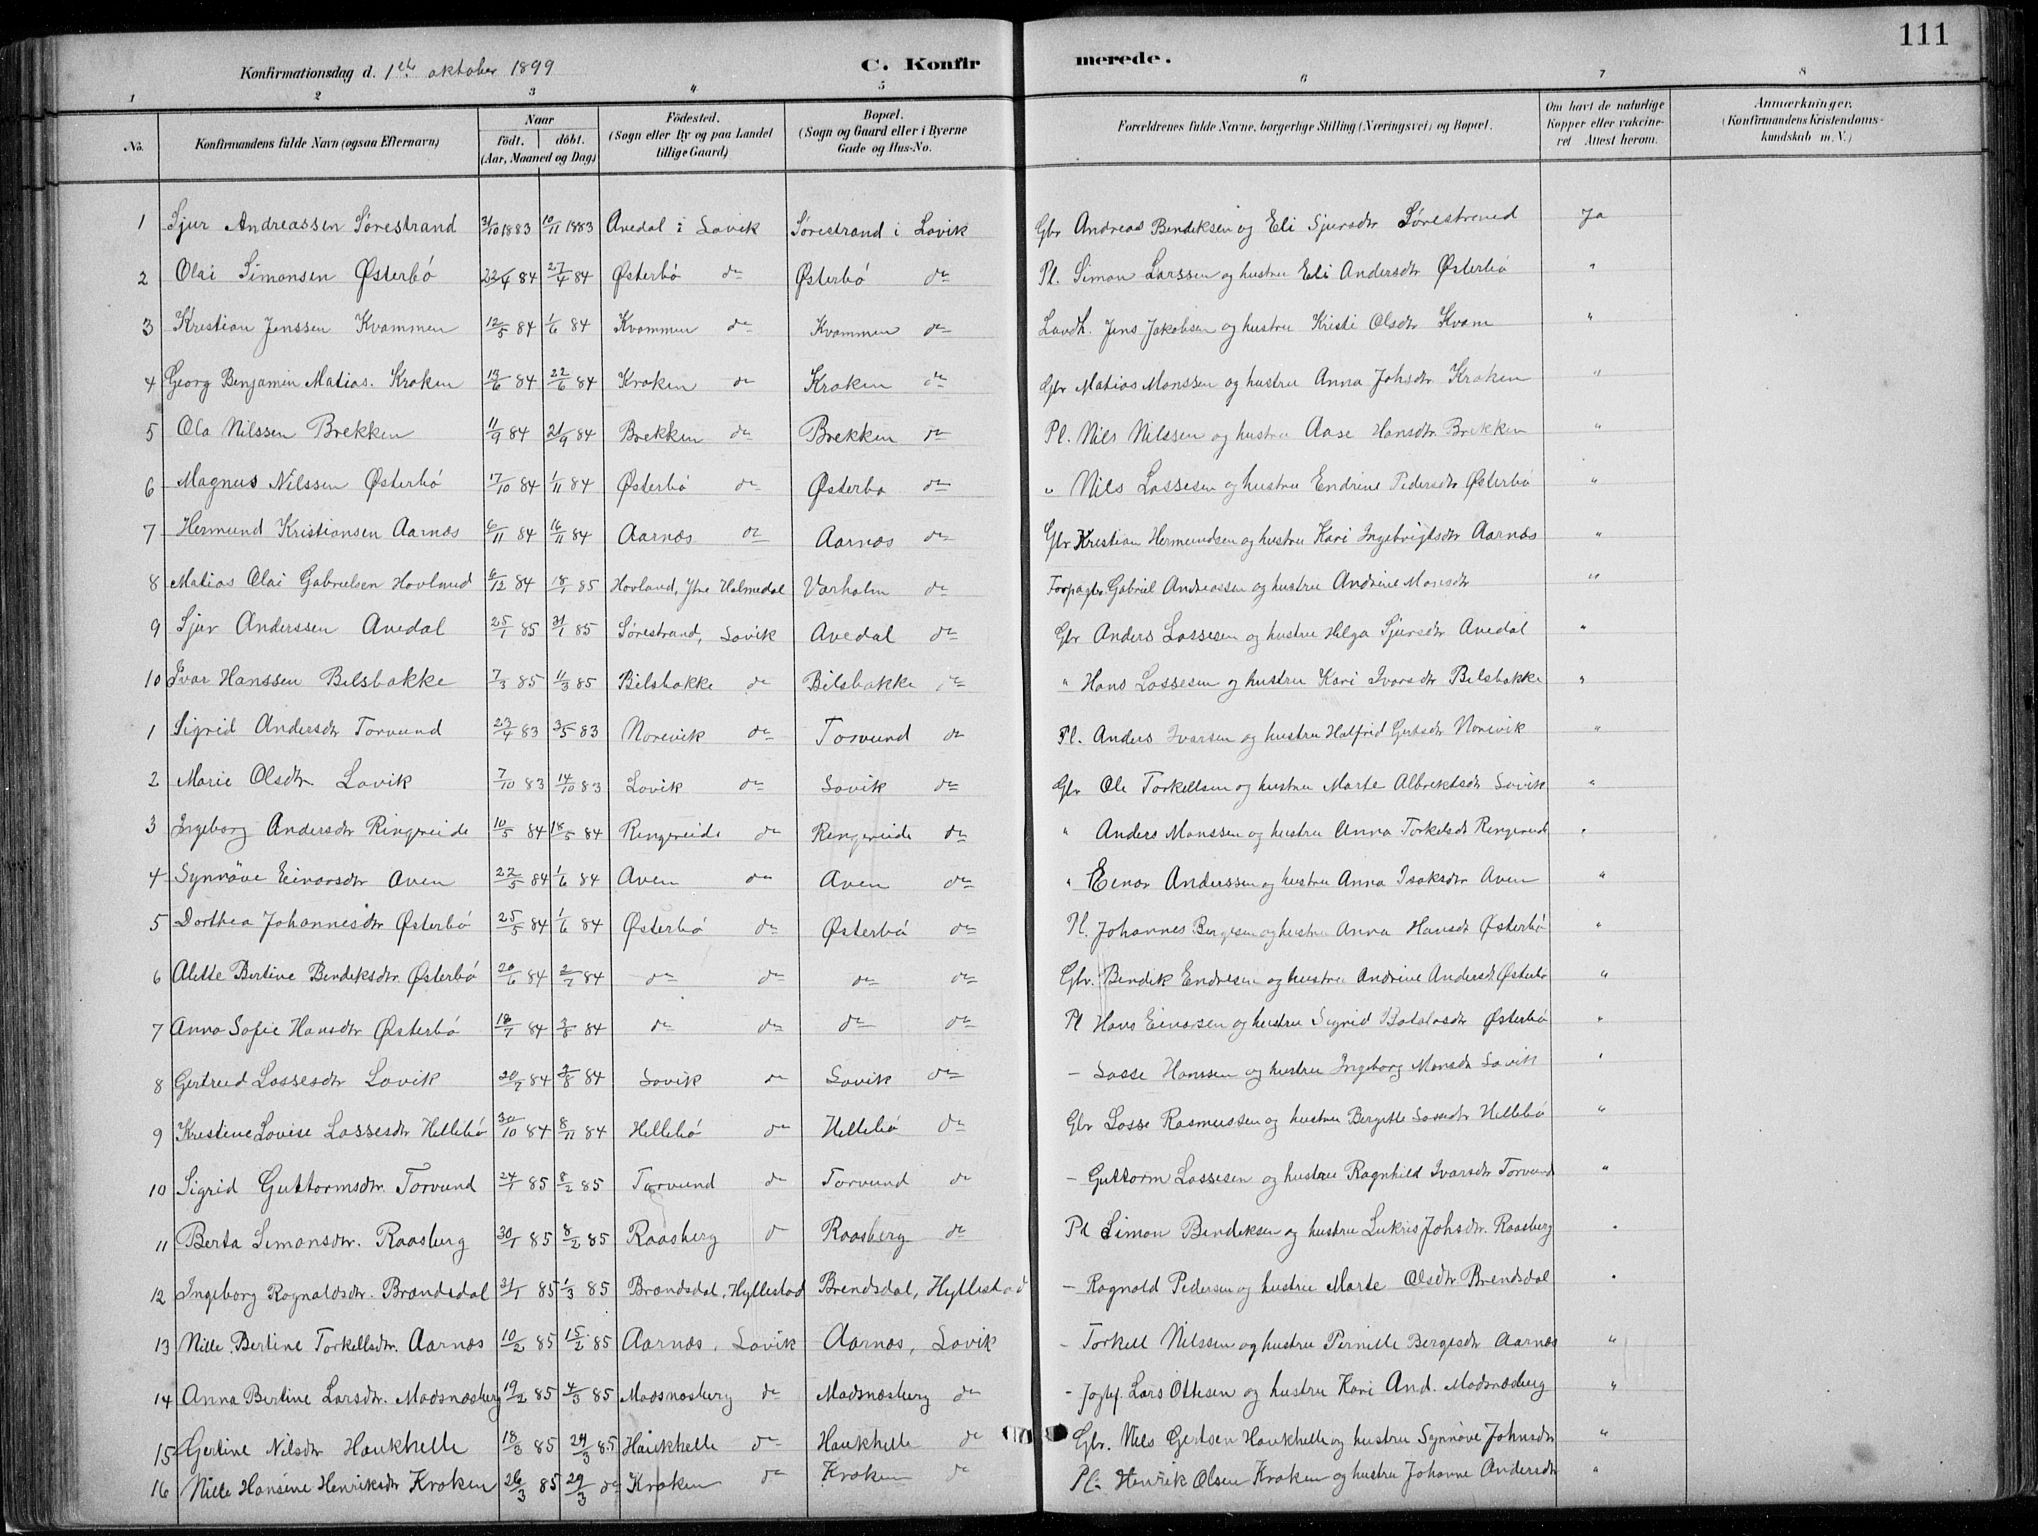 111
Konfirmationsdag d. 1ste oktober 1899 C. Konfirmerede.
1 2 3 4 5 6 7 8
No. Konfirmandens fulde Navn (ogsaa Efternavn) Naar født. døbt. (Aar, Maaned og Dag) Födested. (Sogn eller By og paa Landet tillige Gaard) Bopæl. (Sogn og Gaard eller i Byerne Gade og Hus-No. Forældrenes fulde Navne, borgerlige Stilling (Næringsvei) og Bopæl. Om havt de naturlige Kopper eller vakcineret Attest herom. Anmærkninger. (Konfirmandens Kristendomskundskab m. V.)
1 Sjur Andreassen Sørestrand 31/10 1883 10/11 1883 Avedal i Lavik Sørestrand i Lavik Gbr Andreas Bendiksen og Eli Sjursdtr Sørestrand Ja
2 Olai Simonsen Østerbø 22/4 84 27/4 84 Østerbø do Østerbø do Pl. Simon Larssen og hustru Eli Andersdtr Østerbø "
3 Kristian Jenssen Kvammen 12/5 84 1/6 84 Kvammen do Kvammen do Landh. Jens Jakobsen og hustru Kristi Olsdtr Kvam "
4 Georg Benjamin Matias. Kroken 13/6 84 22/6 84 Kroken do Kroken do Gbr Matias Monssen og hustru Anna Johsdtr Kroken "
5 Ola Nilssen Brekken 11/9 84 21/9 84 Brekken do Brekken do Pl. Nils Nilssen og hustru Aase Hansdtr Brekken "
6 Magnus Nilssen Østerbø 17/10 84 1/11 84 Østerbø do Østerbø do " Nils Lassesen og hustru Endrine Pedersdtr Østerbø "
7 Hermund Kristiansen Aarnæs 6/11 84 16/11 84 Aarnæs do Aarnæs do Gbr Kristian Hermundsen og hustru Kari Ingebrigtsdtr Aarnæs "
8 Matias Olai Gabrielsen Hovland 6/12 84 18/1 85 Hovland, Ytre Holmedal Varholm do Forpagtr. Gabriel Andreassen og hustru Andrine Monsdtr "
9 Sjur Anderssen Avedal 25/1 85 31/1 85 Sørestrand, Lavik Avedal do Gbr Anders Lassesen og hustru Helga Sjursdtr Avedal "
10 Ivar Hanssen Bilsbakke 7/3 85 11/3 85 Bilsbakke do Bilsbakke do " Hans Lassesen og hustru Kari Ivarsdtr Bilsbakke "
1 Sigrid Andersdtr Torvund 23/4 83 3/5 83 Norevik do Torvund do Pl. Anders Ivarsen og hustru Halfrid Gertsdtr Norevik "
2 Marie Olsdtr. Lavik 7/10 83 14/10 83 Lavik do Lavik do Gbr Ole Torkellsen og hustru Marte Albrektsdtr Lavik "
3 Ingeborg Andersdtr Ringereide 10/5 84 18/5 84 Ringereide do Ringereide do " Anders Monssen og hustru Anna Torkelsdt "
4 Synnöve Einarsdtr Aven 22/5 84 1/6 84 Aven do Aven do " Einar Anderssen og hustru Anna Isaksdtr Aven "
5 Dorthea Johannesdtr Østerbø 25/5 84 1/6 84 Østerbø do Østerbø do Pl. Johannes Bergesen og hustru Anna Hansdt Østerbø "
6 Alette Bertine Bendiksdtr. Østerbø 20/6 84 2/7 84 do do do do Gbr. Bendik Endresen og hustru Andrine Andersd. Østerbø "
7 Anna Sofie Hansdtr Østerbø 18/7 84 3/8 84 do do do do Pl Hans Einarsen og hustru Sigrid Østerbø "
8 Gertrud Lassesdtr Lavik 20/7 84 3/8 84 Lavik do Lavik do - Lasse Hanssen og hustru Ingeborg Monsdtr Lavik "
9 Kristine Lovise Lassesdtr Hellebø 30/10 84 8/11 84 Hellebø do Hellebø do Gbr Lasse Rasmussen og hustru Bergitte Lassedtr Hellebø "
10 Sigrid Guttormsdtr. Torvund 24/1 85 8/2 85 Torvund do Torvund do - Guttorm Lassesen og hustru Ragnhild Ivarsdtr Torvund "
11 Berta Simonsdtr. Raasberg 30/1 85 8/2 85 Raasberg do Raasberg do Pl Simon Bendiksen og hustru Lukris Johsdtr. Raasberg "
12 Ingeborg Ragnaldsdtr. Brændsdal 31/1 85 1/3 85 Brændsdal, Hyllestad Brendsdal, Hyllestad - Ragnald Pedersen og hustru Marte Olsdtr Brendsdal "
13 Nille Bertine Torkellsdtr. Aarnæs 10/2 85 15/2 85 Aarnæs, Lavik Aarnæs, Lavik - Torkell Nilssen og hustru Pernille Bergesdtr Aarnæs "
14 Anna Bertine Larsdtr. Madsnæsberg 19/2 85 4/3 85 Madsnæsberg do Madsnæsberg do - Lars Ottesen og hustru Kari And. Madsnæsberg "
15 Gertine Nilsdtr Haukhelle 18/3 85 29/3 85 Haukhelle do Haukhelle do Gbr. Nils Gertsen Haukhelle og hustru Synnøve Johnsdtr "
16 Nille Hansine Henriksdtr Kroken 26/3 85 29/3 do Kroken do Kroken do Pl. Henrik Olsen Kroken og hustru Johanne Andersdtr "